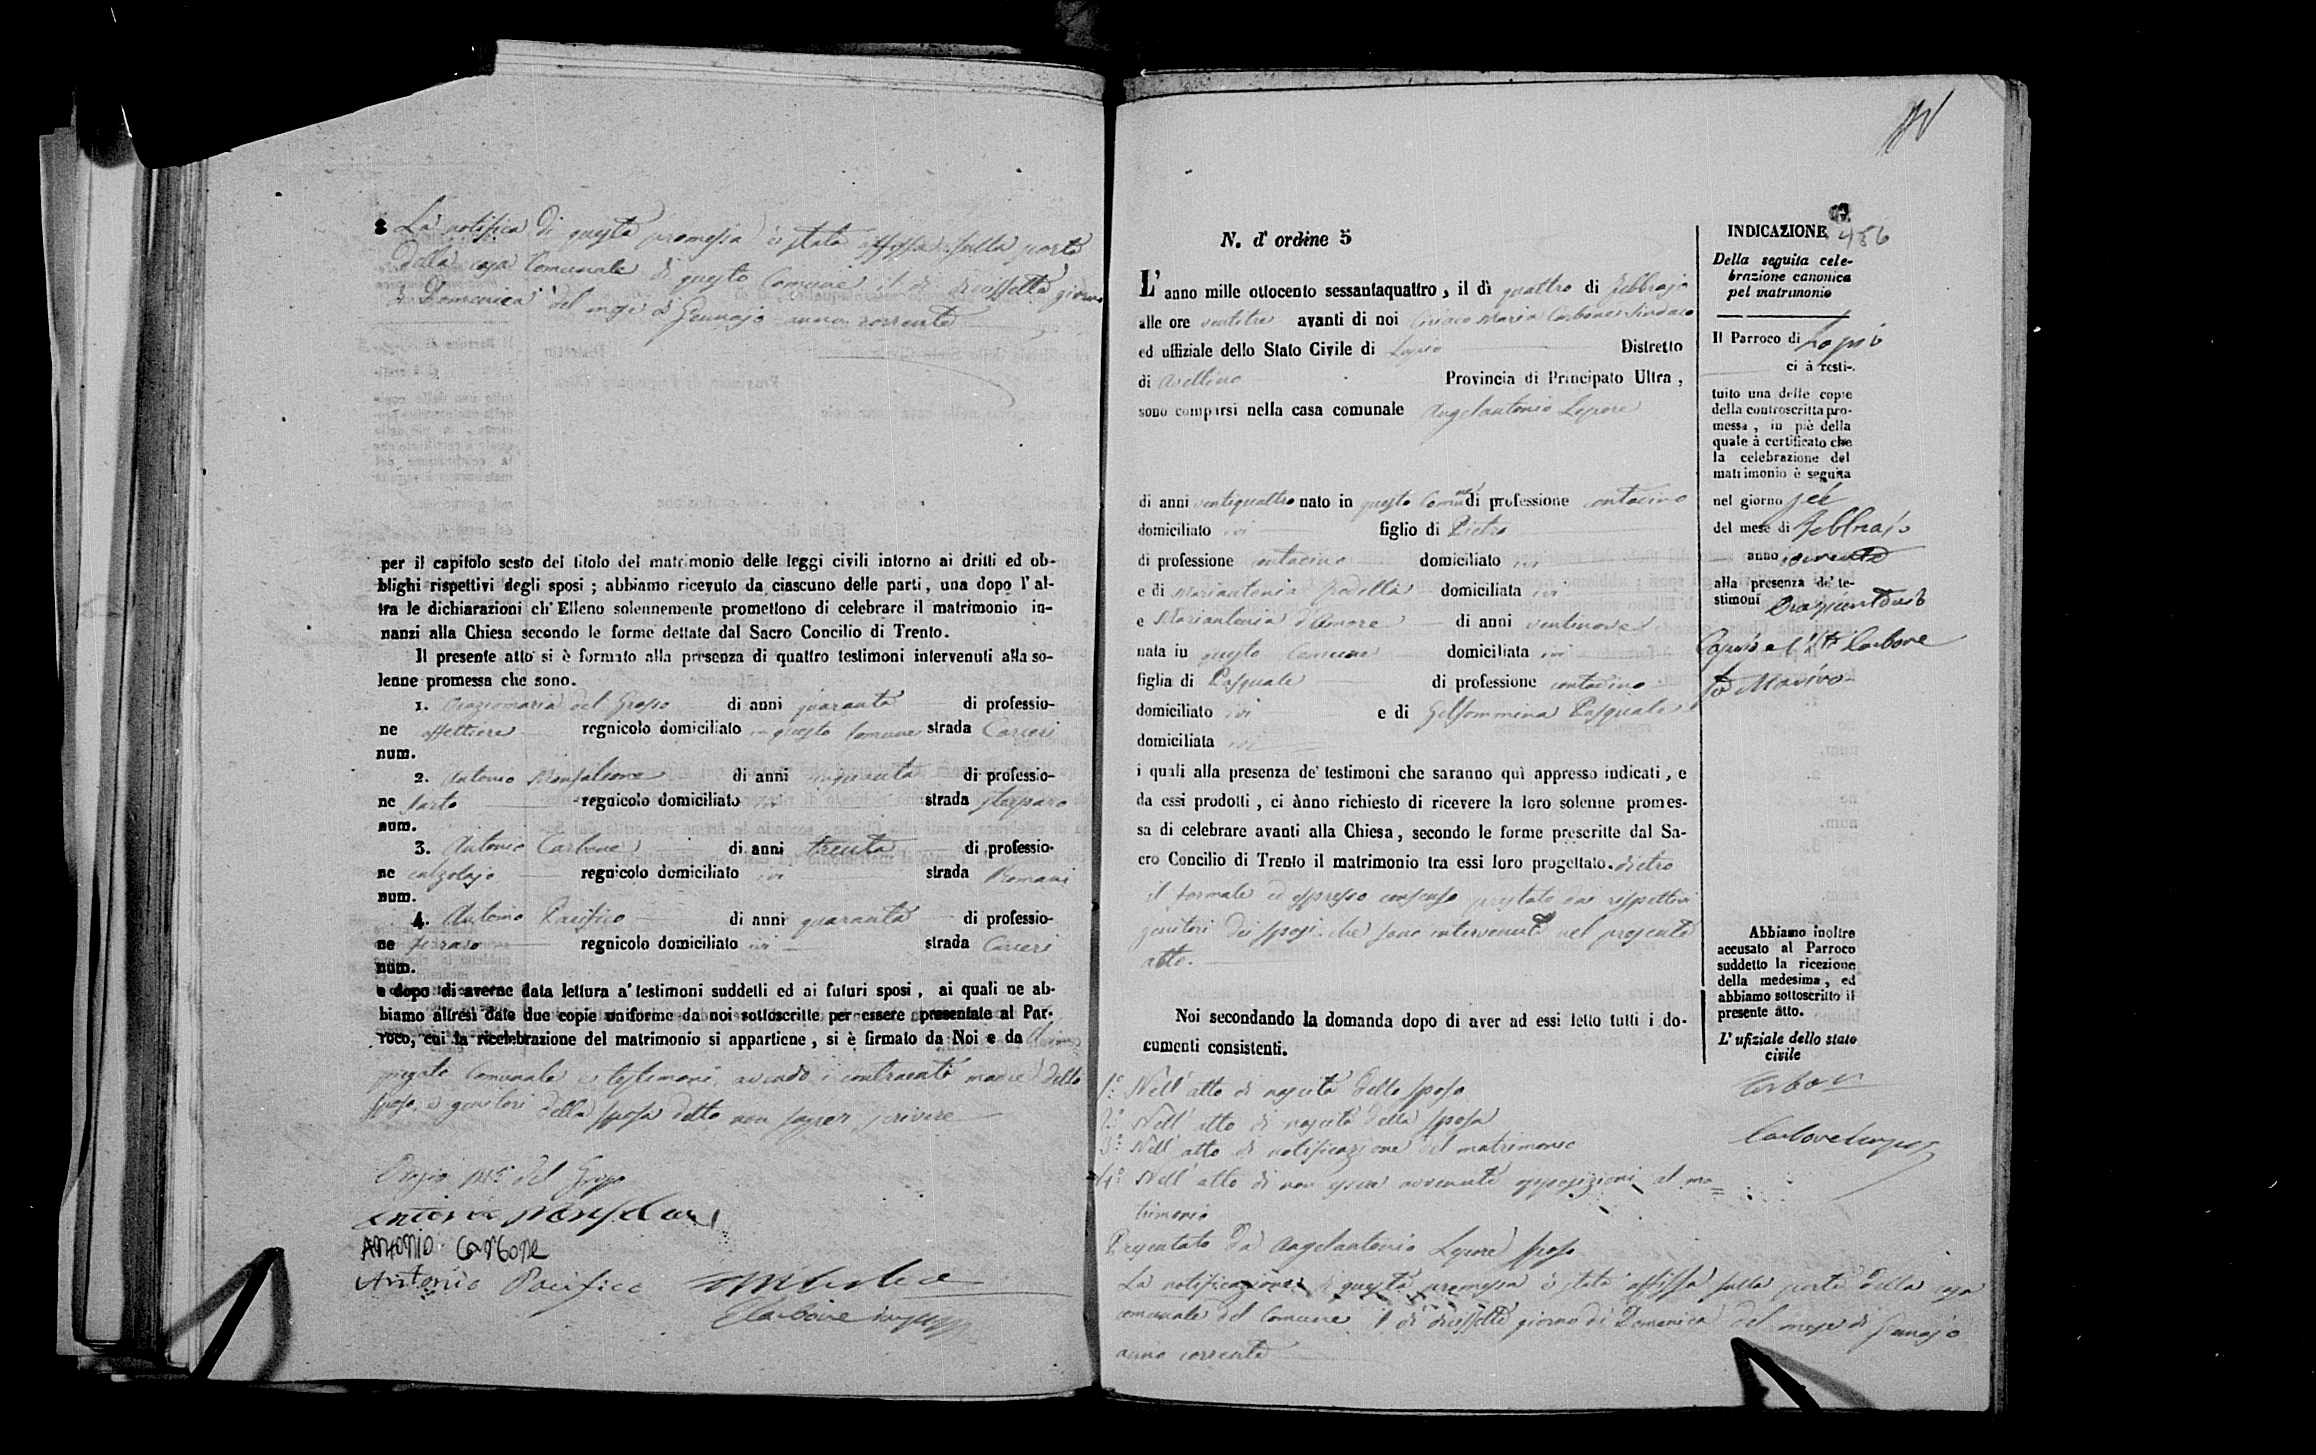 La notifica di questa promessa è stata affissa sulla porta
della casa Comunale di questo Comune il dì diciassette giorno
di Domenica del mese di Gennajo anno corrente
per il capitolo sesto del titolo del matrimonio delle leggi civili intorno ai dritti ed ob-
blighi rispettivi degli sposi ; abbiamo ricevuto da ciascuno delle parti, una dopo l' al-
tra le dichiarazioni ch' Elleno solennemente promettono di celebrare il matrimonio in-
nanzi alla Chiesa secondo le forme dettate dal Sacro Concilio di Trento.
Il presente atto si è formato alla presenza di quattro testimoni intervenuti alla so-
lenne promessa che sono.
1. Oraziomaria del Grosso di anni quaranta di professio-
ne regnicolo domiciliato in questo Comune strada Carceri
num.
2. Antonio di anni cinquanta di professio-
ne sarto regnicolo domiciliato ivi strada
num.
3. Antonio Carbone di anni trenta di professio-
ne calzolajo regnicolo domiciliato ivi strada Romani
num.
4. Antonio Pacifico di anni quaranta di professio-
ne ferraro regnicolo domiciliato ivi strada Carceri
num.
e dopo di averne data lettura a' testimoni suddetti ed ai futuri sposi , ai quali ne ab-
biamo altresì date due copie uniforme da noi sottoscritte per essere presentate al Par-
roco, cui la ricelebrazione del matrimonio si appartiene , si è firmato da Noi e da
Comunale e testimoni, avendo i contraenti madre dello
sposo, e genitori della sposa detto non saper scrivere
Orazio M.ª del Grosso
Antonio
ANTONIO CARBONE
Antonio Pacifico
Carbone
N. d' ordine 5
L' anno mille ottocento sessantaquattro , il dì quattro di Febbrajo
alle ore ventitre avanti di noi Ciriaco Maria Carbone Sindaco
ed uffiziale dello Stato Civile di Lapio Distretto
di Avellino Provincia di Principato Ultra ,
sono comparsi nella casa comunale Angelantonio Lepore
di anni ventiquattro nato in questo Comune di professione contadino
domiciliato ivi figlio di Pietro
di professione contadino domiciliato ivi
e di Mariantonia domiciliata ivi
e Mariantonia d'Amore di anni ventinove
nata in questo Comune domiciliata ivi
figlia di Pasquale di professione contadino
domiciliato ivi e di Gelsommina Pasquale
domiciliata ivi
i quali alla presenza de' testimoni che saranno quì appresso indicati , e
da essi prodotti , ci ànno richiesto di ricevere la loro solenne promes-
sa di celebrare avanti alla Chiesa , secondo le forme prescritte dal Sa-
cro Concilio di Trento il matrimonio tra essi loro progettato. dietro
il formale ed espresso consenso prestato dai rispettivi
genitori dei sposi che sono intervenuti nel presente
atto.
Noi secondando la domanda dopo di aver ad essi letto tutti i do-
cumenti consistenti.
1.° Nell' atto di nascita dello sposo
2.° Nell' atto di nascita della sposa
3.° Nell' atto di notificazione del matrimonio
4.° Nell' atto di non essere avvenute opposizioni al ma=
trimonio
Presentato da Angelantonio Lepore sposo
La notificazione di questa promessa è stata affissa sulla porta della casa
comunale del Comune il dì diciassette giorno di Domenica del mese di Gennajo
anno corrente
486
INDICAZIONE
Della seguita cele-
brazione canonica
pel matrimonio
Il Parroco di Lapio
ci à resti-
tuito una delle copie
della controscritta pro-
messa , in piè della
quale à certificato che
la celebrazione del
matrimonio è seguita
nel giorno sei
del mese di Febbrajo
anno corrente
alla presenza de' te-
stimoni
Carbone
Abbiamo inoltre
accusato al Parroco
suddetto la ricezione
della medesima , ed
abbiamo sottoscritto il
presente atto.
L' ufiziale dello stato
civile
Carbone
Carbone